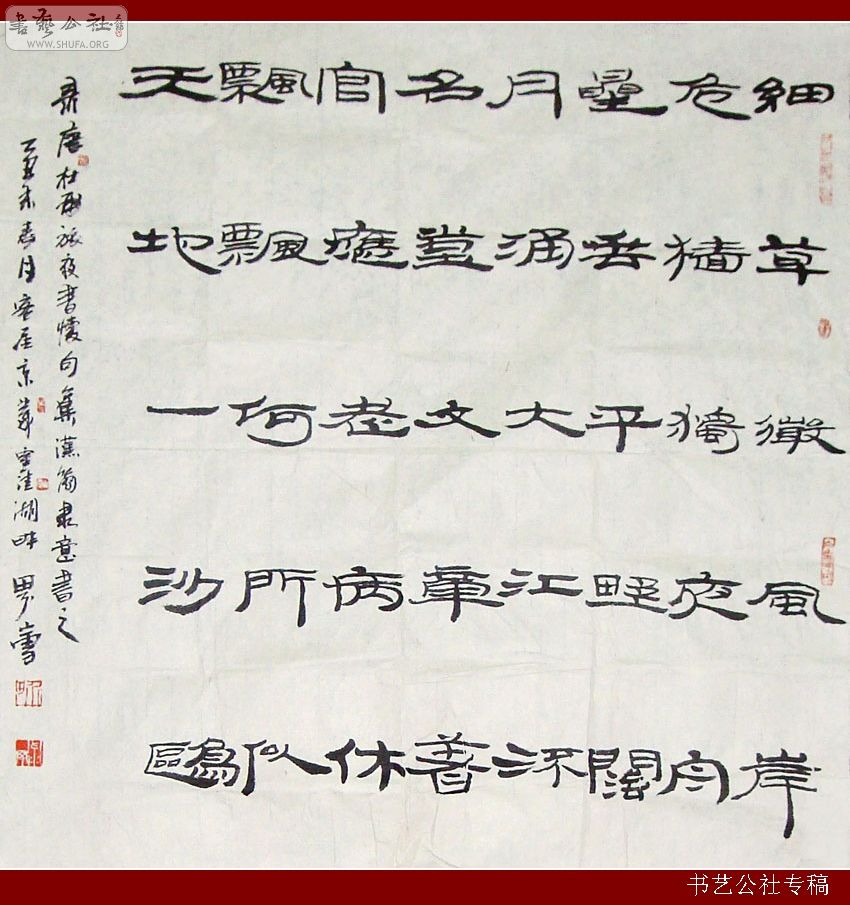 書藝公社
WWW.SHUFA.ORG
細草微風岸
危檣獨夜舟
星垂平野闊
月涌大江流
名豈文章著
官應老病休
飄飄何所似
天地一沙鷗
录唐杜甫旅夜書懷句集漢簡隶意書之
丁亥末春月客居京華 湖畔
书艺公社专稿